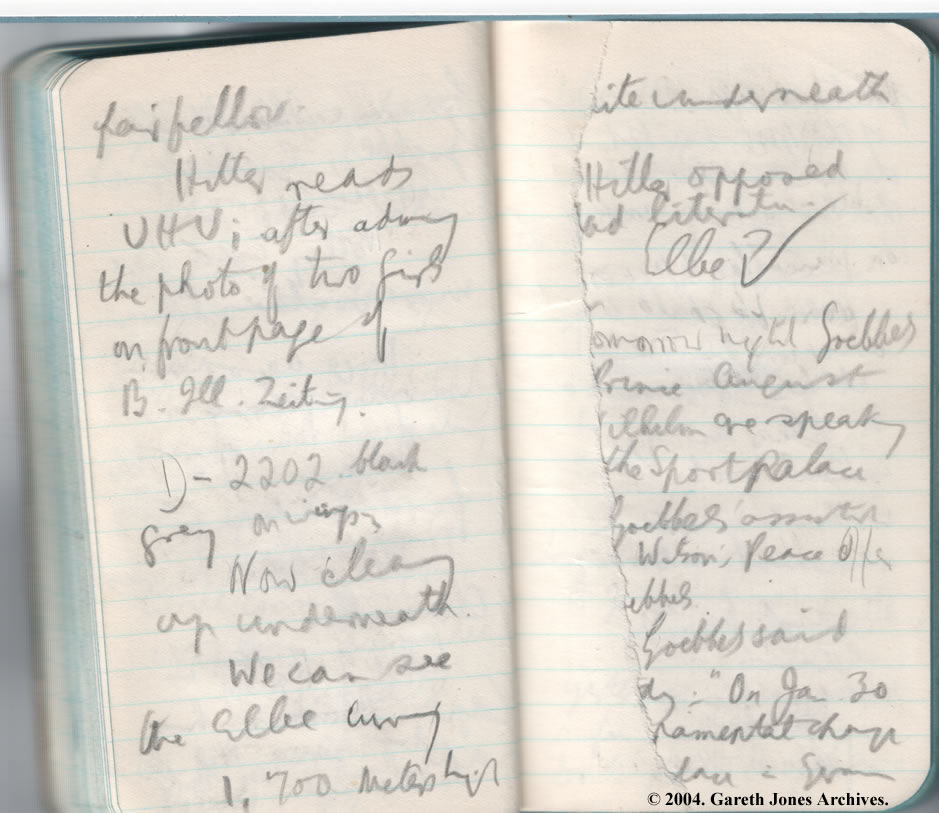 fair fellow.
Hitler reads
VHV; after admiring
the photo of two girls
on front page of
B. Ill. Zeitung.
D-2202 black
grey on wings
Now clearing
up underneath.
We can see
the Elbe curving
1,700 meters high
ite underneath
Hitler opposed
ad literatu.
Elbe ?
omorrow night Goebbels
Prince August
ilhelm are speaking
the Sportpalace
Goebbels
Wilson's Peace Offer
ebbels
Goebbels said
"On Jan. 30
damental change
place in German
© 2004. Gareth Jones Archives.